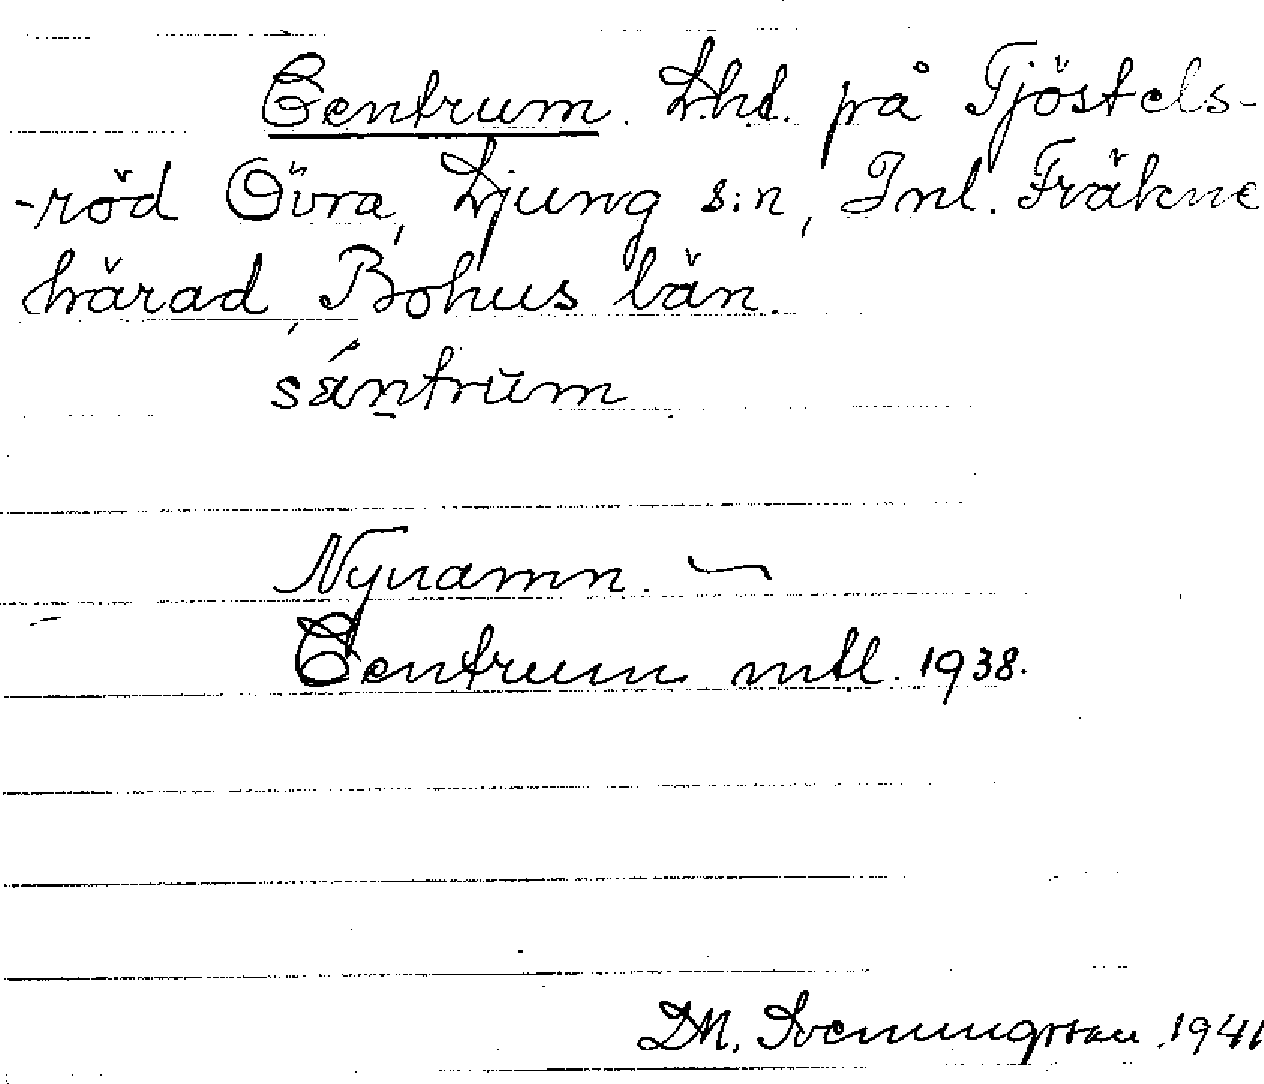 Centrum. Lht. på Tjöstels-
-röd Övra, Ljung s:n, Inl. Fräkne
härad, Bohus län.
sántrŭm
Nynamn. —
Centrum mtl. 1938.
DM. Sveningsson 1941